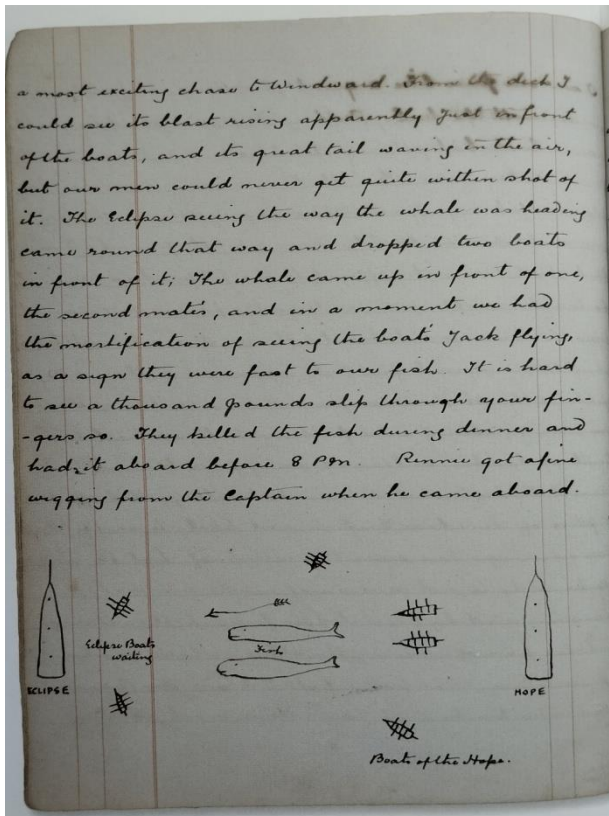 a most exciting chase to Windward. From the deck I
could see its blast rising apparently just in front
of the boats, and its great tail waving in the air,
but our men could never get quite within shot of
it. The Eclipse seeing the way the whale was heading
came round that way and dropped two boats
in front of it; The whale came up in front of one,
the second mate's, and in a moment we had
the mortification of seeing the boat's Jack flying,
as a sign they were fast to our fish. It is hard
to see a thousand pounds slip through your fin-
-gers so. They killed the fish during dinner and
had it aboard before 8 PM. Rennie got a fine
wigging from the Captain when he came aboard.
Eclipse Boats
waiting
Fish
ECLIPSE
HOPE
Boats of the Hope.